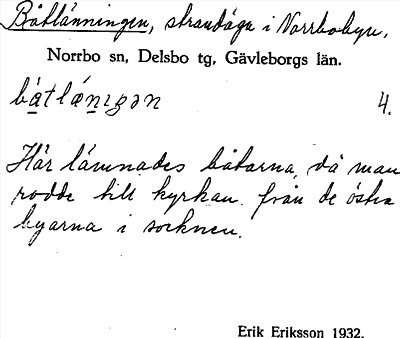 Båtlänningen, strandäga i Norrbobyn,
Norrbo sn, Delsbo tg, Gävleborgs län.
bátlǽnıgən 4.
Här lämnades båtarna, då man
rodde till kyrkan från de östra
byarna i socknen.
Erik Eriksson 1932.